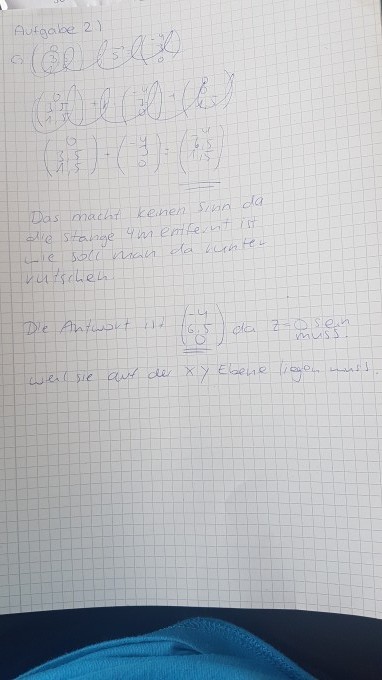 Aufgabe 2)
(0 3,5 1,5) + (-4 3 0) = (-4 6,5 1,5)
Das macht keinen Sinn da
die Stange 4m entfernt ist
wie soll man da runter
rutschen
Die Antwort ist (-4 6,5 0) da z=0 sein
muss.
weil sie auf der xy Ebene liegen muss.